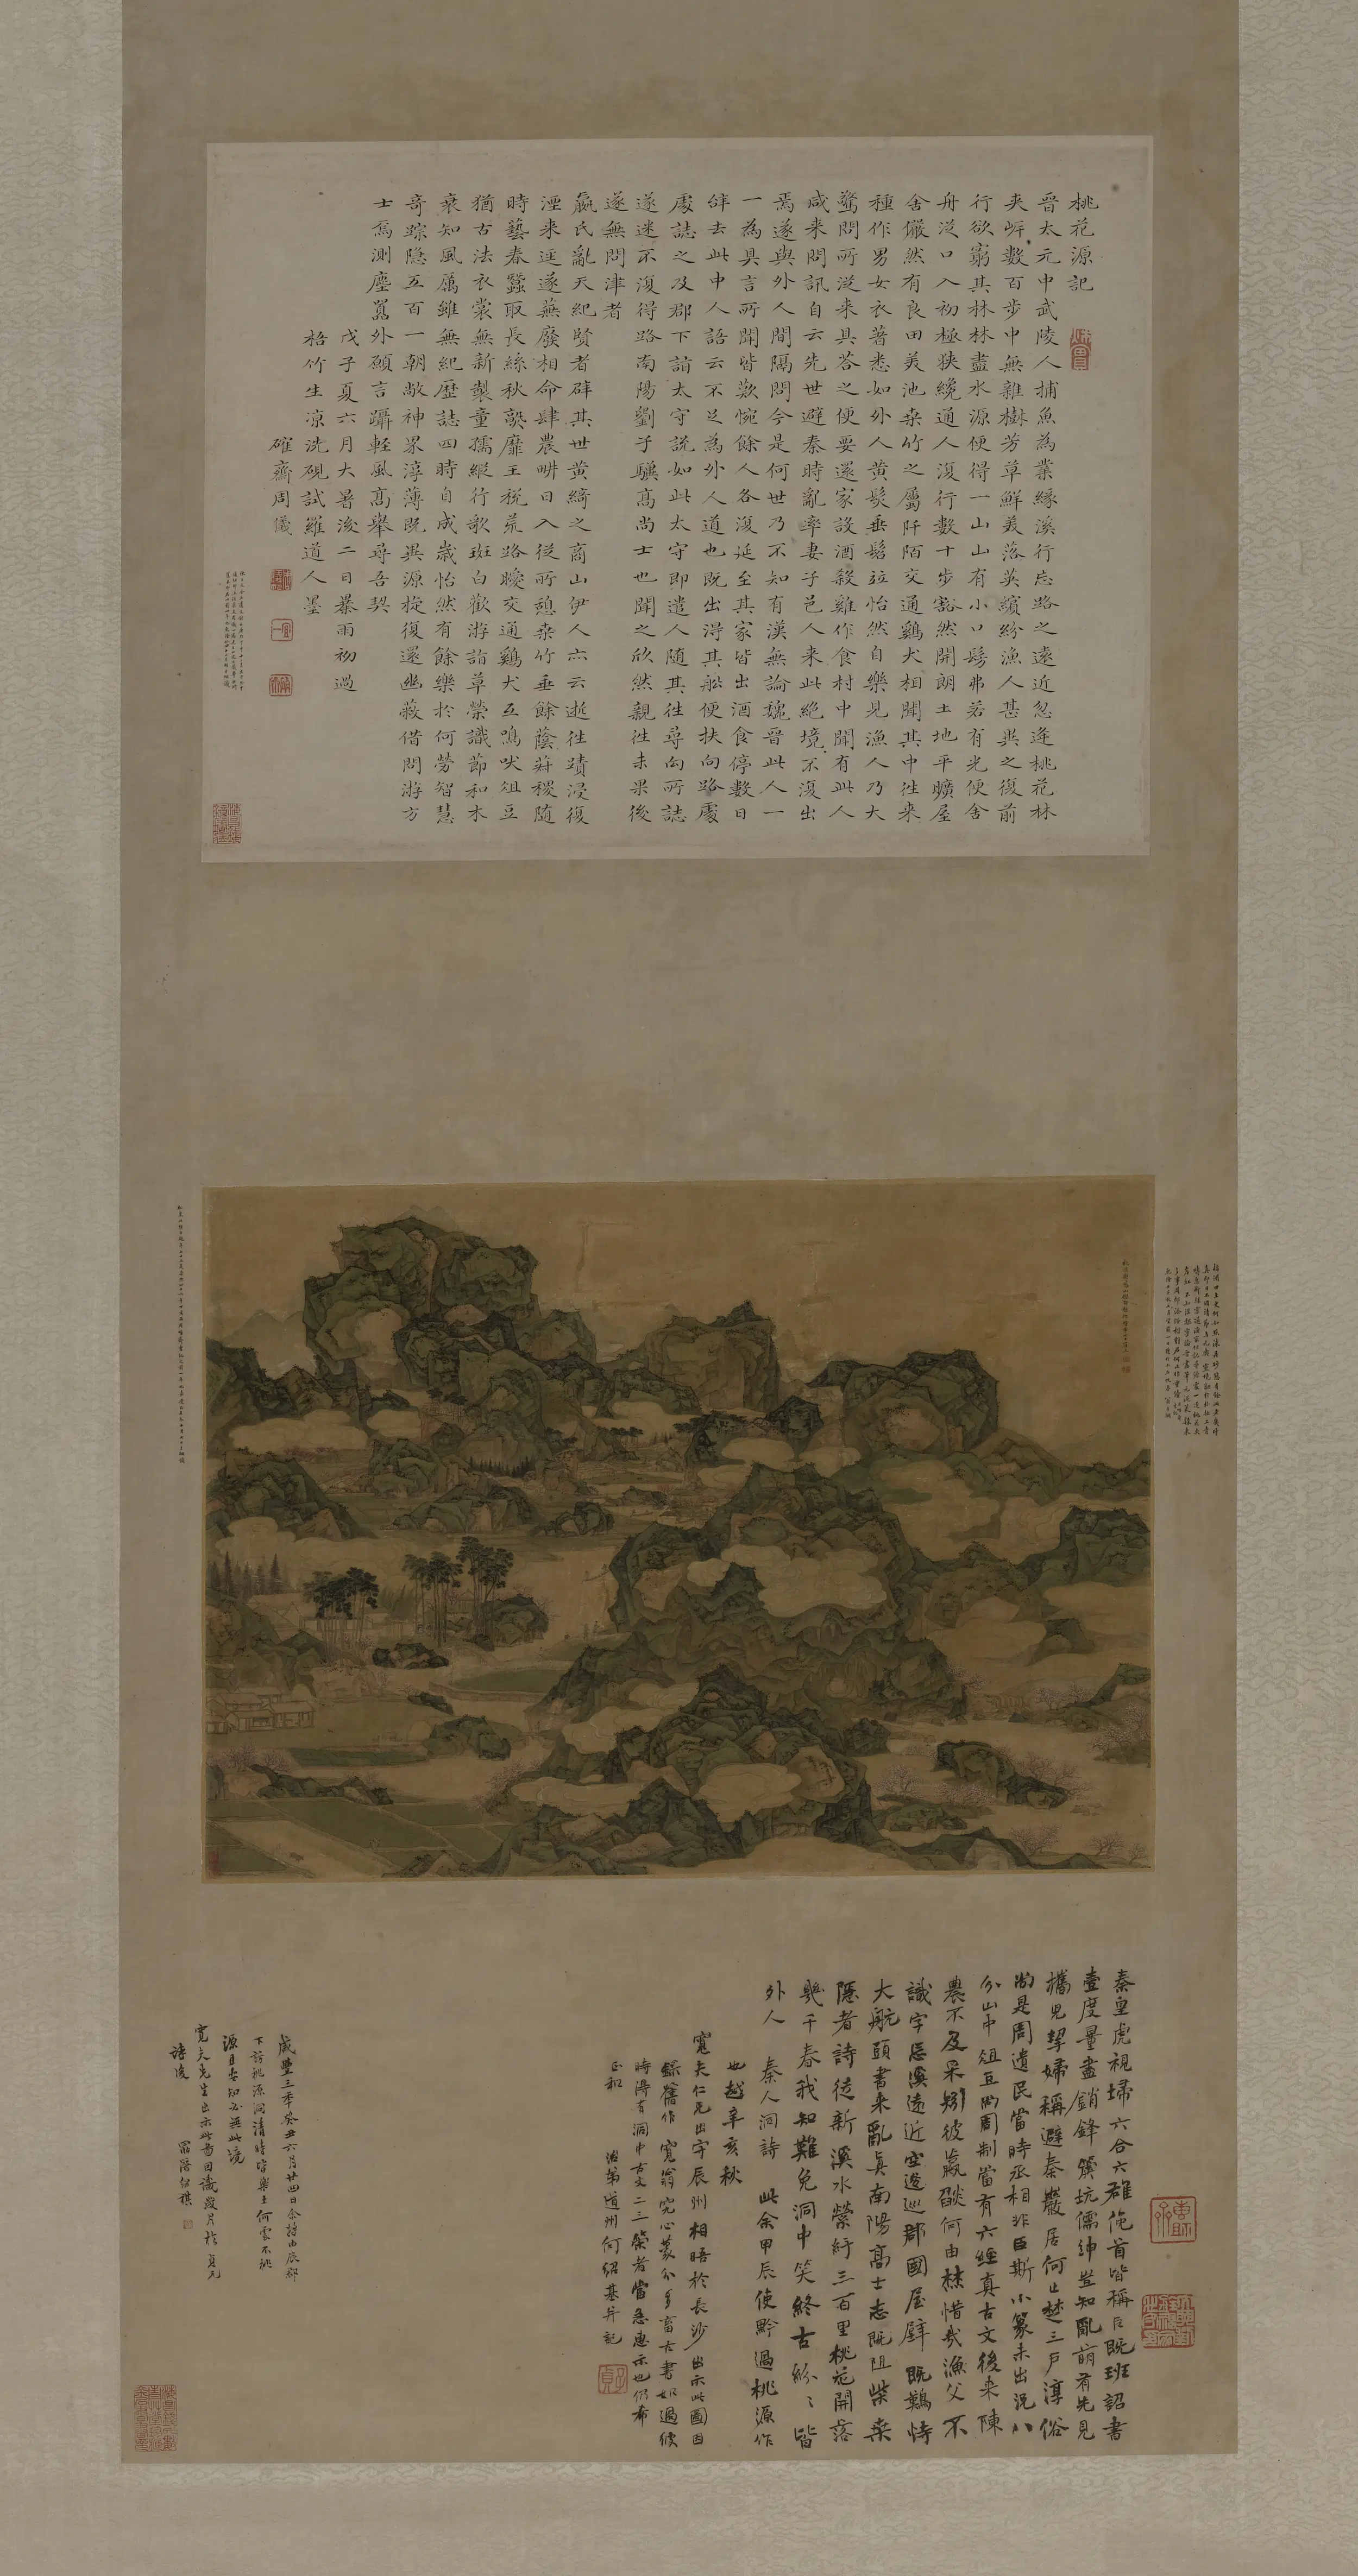 桃花源記
晉太元中武陵人捕魚為業緣溪行忘路之遠近忽逢桃花林
夾岸數百步中無雜樹芳草鮮美落英繽紛漁人甚異之復前
行欲窮其林林盡水源便得一山山有小口髣弗若有光便舍
舟從口入初極狹纔通人復行數十步豁然開朗土地平曠屋
舍儼然有良田美池桑竹之屬阡陌交通鷄犬相聞其中徃來
種作男女衣著悉如外人黃髮垂髫竝怡然自樂見漁人乃大
驚問所從来具答之便要還家設酒殺雞作食村中聞有此人
咸来問訊自云先世避秦時亂率妻子邑人来此絶境不復出
焉遂與外人間隔問今是何世乃不知有漢無論魏晉此人一
一為具言所聞皆歎惋餘人各復延至其家皆出酒食停數日
辞去此中人語云不足為外人道也既出得其船便扶向路處
處誌之及郡下詣太守說如此太守即遣人隨其徃尋向所誌
遂迷不復得路南陽劉子驥高尚士也聞之欣然親徃未果後
遂無問津者
嬴氏亂天紀賢者辟其世黃綺之商山伊人亦云逝徃蹟浸復
湮来逕遂蕪廢相命肆農畊日入從所憩桑竹垂餘蔭菽稷隨
時藝春蠶取長絲秋熟靡王稅荒路曖交通鷄犬互鳴吠俎豆
猶古法衣裳無新製童孺縱行歌斑白歡游詣草榮識節和木
衰知風厲雖無紀歷誌四時自成歲怡然有餘樂於何勞智慧
奇踪隐五百一朝敞神界淳薄既異源旋復還幽蔽借問游方
士焉測塵嚣外願言躡輕風高舉尋吾契
戊子夏六月大暑後二日暴雨初過
梧竹生凉洗硯試羅道人墨
確齋周儀
秦皇虎視埽六合六雄俛首皆稱臣既班詔書
壹度量盡銷鋒鏑坑儒紳豈知亂萌有先見
攜兒挈婦稱避秦巖居何止楚三戶淳俗
尚是周遺民當時丞相非臣斯小篆未出況八
分山中俎豆尚周制當有六經真古文後来陳
農不及采劉彼嬴燄何由焚惜哉漁父不
識字忘溪遠近空逡巡郡國屋壁既難恃
大航頭書来亂真南陽高士志既阻柴桑
隱者詩徒新溪水縈紆三百里桃花開落
幾千春我知難免洞中笑終古紛〻皆
外人 秦人洞詩 此余甲辰使黔過桃源作
也越辛亥秋
寬夫仁兄出守辰州相晤於長沙出示此圖因
錄舊作 寬翁究心篆分多畜古書如過彼
時得有洞中古文二三策者當急惠示也仍希
正和 治弟道州何紹基并記
咸豐三年癸丑六月廿四日余將由辰郡
下訪桃源洞清時皆樂土何處不桃
源且要知必無此境
寬夫先生出示此圖因識歲月於貞元
詩後